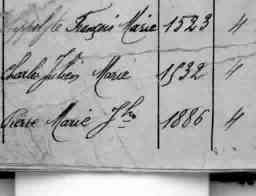 Hippolyte François Marie 1523 4
Charles Julien Marie 1532 4
Pierre Marie Jh 1886 4